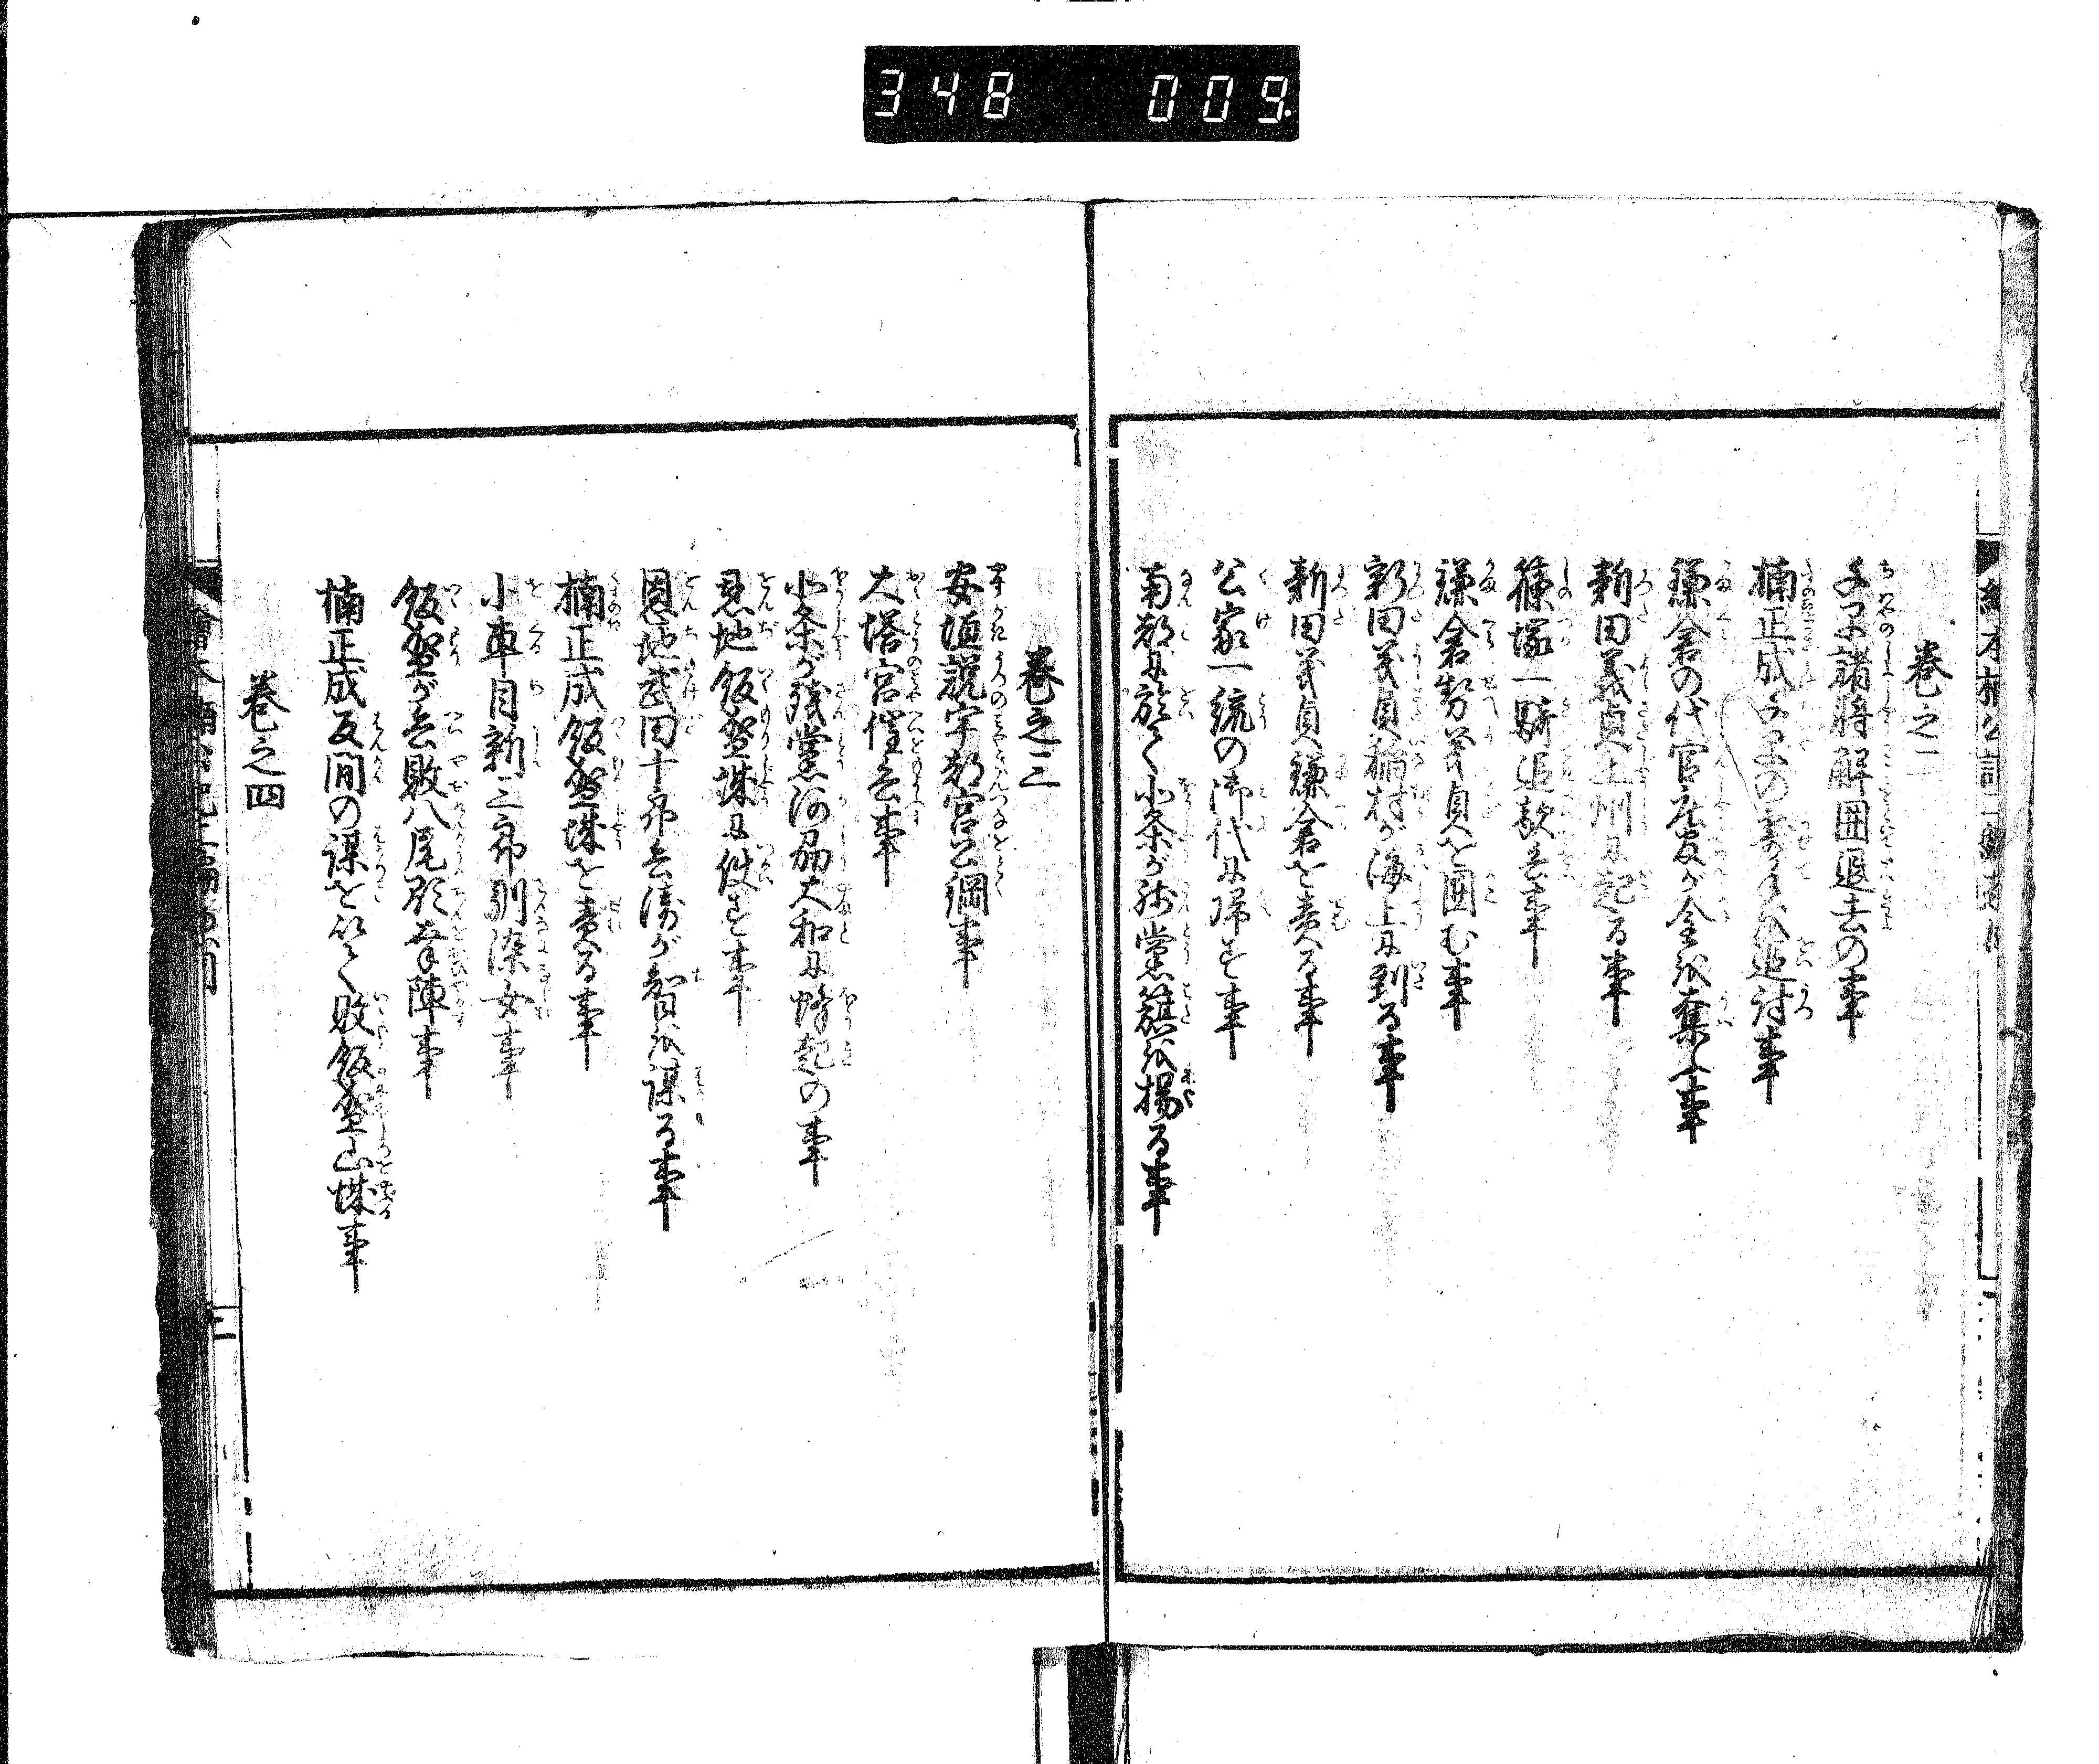 348 009
巻之二
千早諸将解囲退去の事
楠正成千早の寄手を追討事
鎌倉の代官庄家が金を奪ふ事
新田義貞上州に起る事
篠塚一騎追敵兵事
鎌倉勢義貞を囲む事
新田義貞稲村が海上に到る事
新田義貞鎌倉を責る事
公家一統の御代に帰す事
南都に於て北条が残党籏を揚る事
巻之三
安垣説宇都宮公綱事
大塔宮催兵事
北条が残党河州大和に蜂起の事
恩地飯盛城に使す事
恩地武田十郎兵衛が智を謀る事
楠正成飯盛城を責る事
小車目新三郎馴染女事
飯盛が兵敗八尾別当陣事
楠正成反間の謀を以て敗飯盛山城事
巻之四